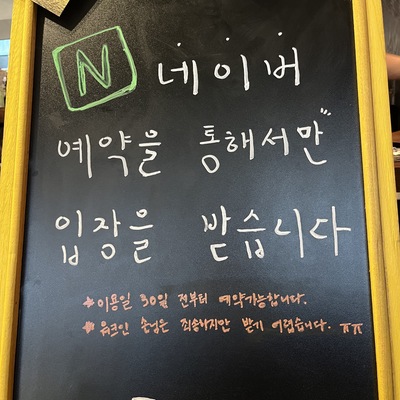 N 네이버
예약을 통해서만"
입장을 받습니다
*이용일 30일 전부터 예약가능합니다.
*워크인 손님은 죄송하지만 받기 어렵습니다. ㅠㅠ